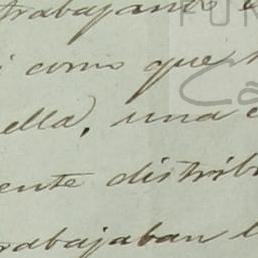 trabajando
i como que
ella, una
ente distrib
trabajaban l